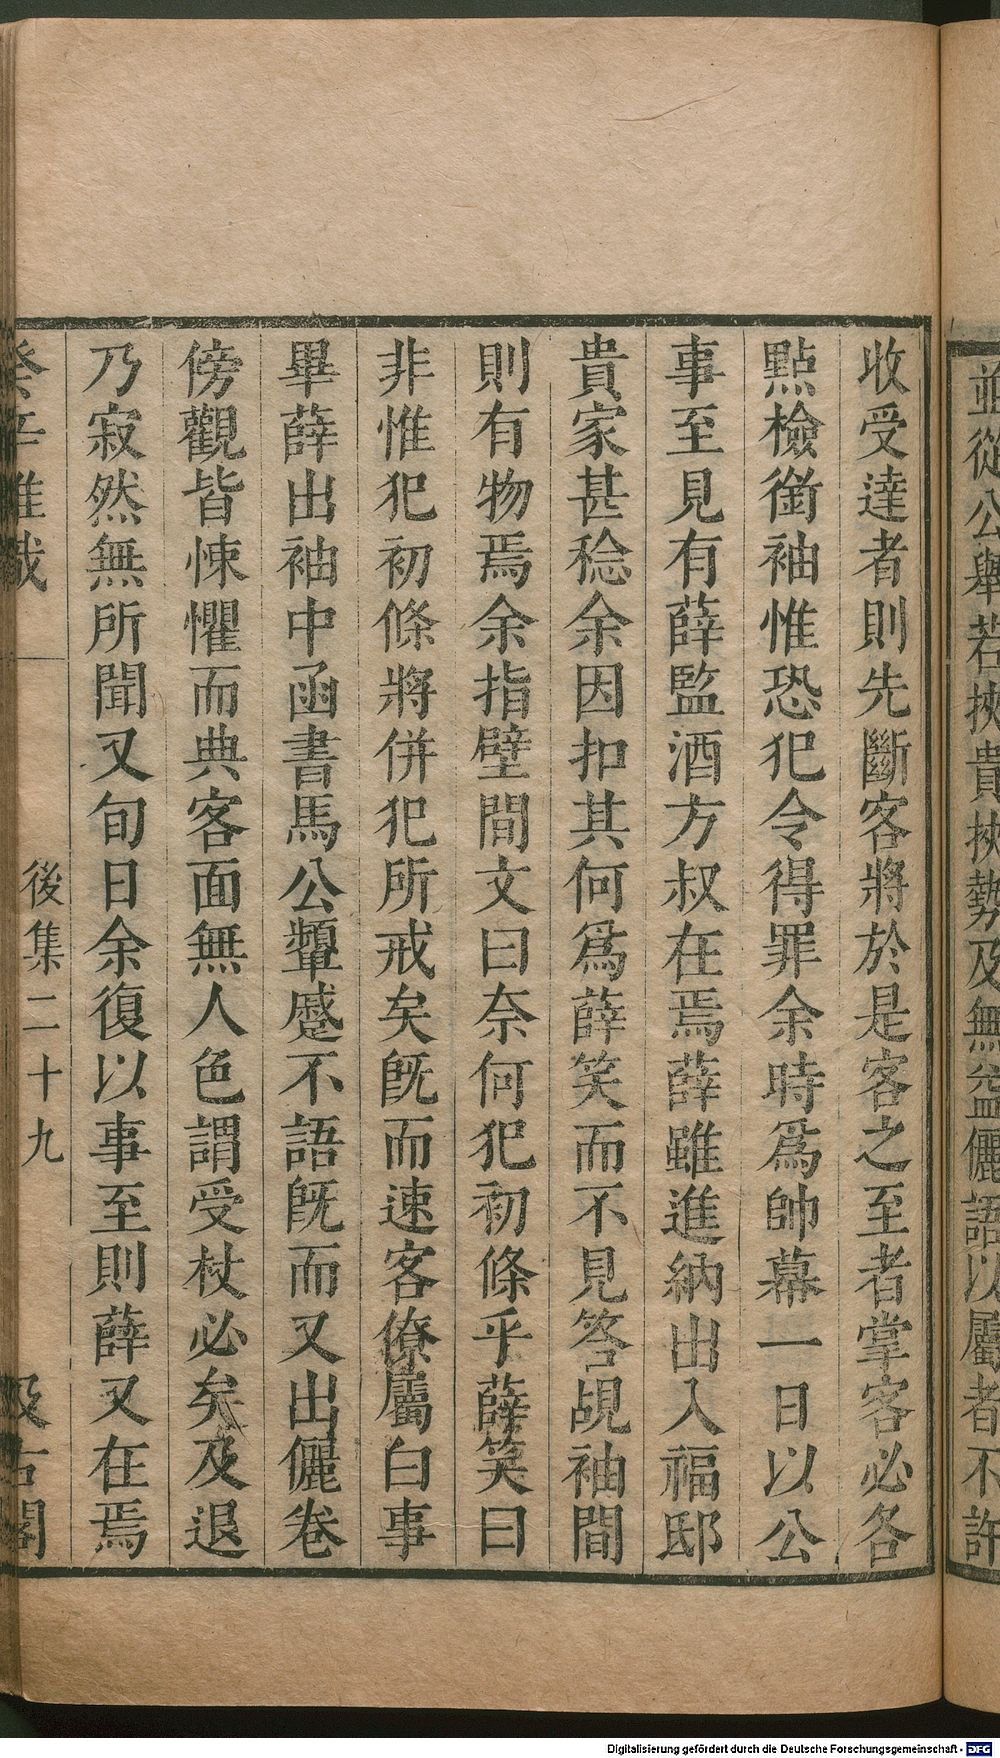 並從公舉若挾貴挾勢及無益儷語以屬者不許
收受達者則先斷客將於是客之至者掌客必各
點檢銜袖惟恐犯令得罪余時爲帥幕一日以公
事至見有薛監酒方叔在焉薛雖進納出入福邸
貴家甚稔余因扣其何爲薛笑而不見答覘袖間
則有物焉余指壁間文曰奈何犯初條乎薛笑曰
非惟犯初條將併犯所戒矣旣而速客僚屬白事
畢薛出袖中函書馬公顰蹙不語旣而又出儷卷
傍觀皆悚懼而典客面無人色謂受杖必矣及退
乃寂然無所聞又旬日余復以事至則薛又在焉
癸辛雜識
後集二十九
汲古閣
Digitalisierung gefördert durch die Deutsche Forschungsgemeinschaft - DFG